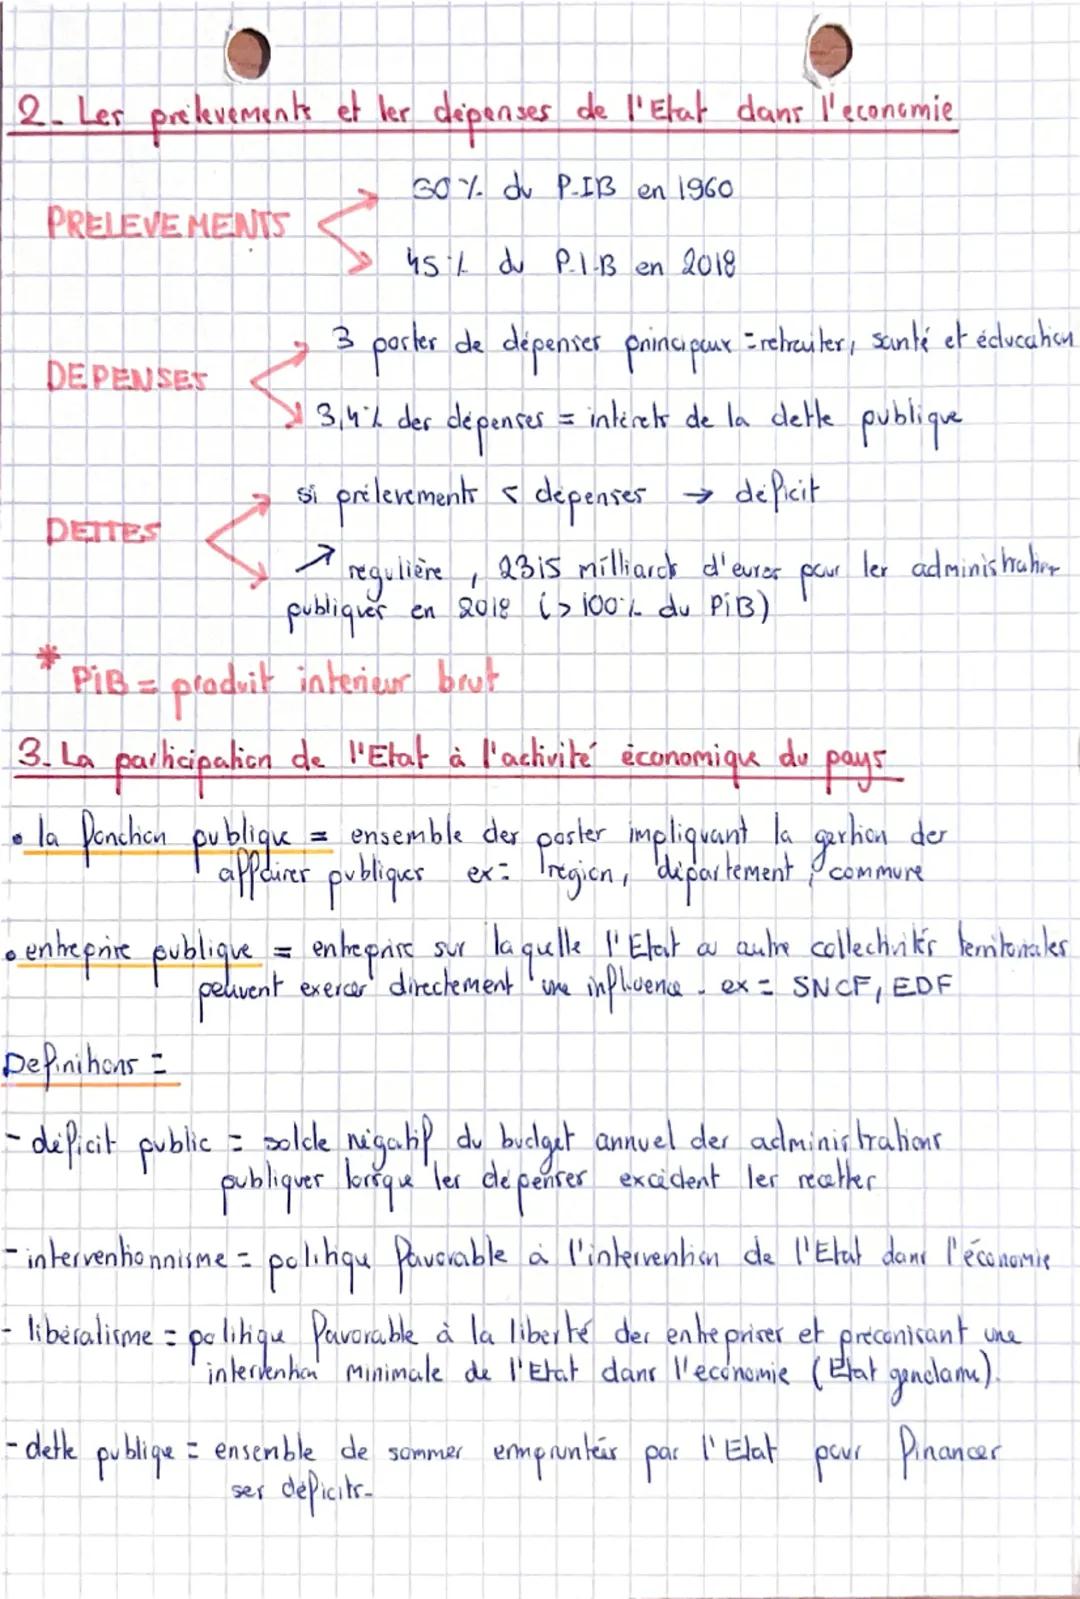 2_ Les prélevements et les dépenses de l'Etat dans l'economie
30% du P.IB en 1960
PRELEVEMENTS
45% du P.I.B en 2018
3 postes de dépenses principaux = retraites, santé et éducation
DEPENSES
3,4% des dépenses = intérets de la dette publique
si prélevements < dépenses → déficit
DETTES
↗ regulière, 2315 milliards d'euros pour les administration
publiques en 2018 (> 100% du PiB)
* PiB = produit interieur brut
3_ La participation de l'Etat à l'activité économique du pays
• la fonction publique = ensemble des postes impliquant la gestion des
affaires publiques ex = region, département, commune
• entreprise publique = entreprise sur laquelle l'Etat ou autre collectivités territoriales
peuvent exercer directement une influence. ex = SNCF, EDF
Definitions =
- déficit public = solde négatif du budget annuel des administrations
publiques lorsque les dépenses excèdent les recettes
- interventionnisme = politique favorable à l'intervention de l'Etat dans l'économie
- libéralisme = politique favorable à la liberté des entreprises et préconisant une
intervention minimale de l'Etat dans l'economie (Etat gendarme).
- dette publique = ensemble de sommes empruntées par l'Etat pour financer
ses déficits.